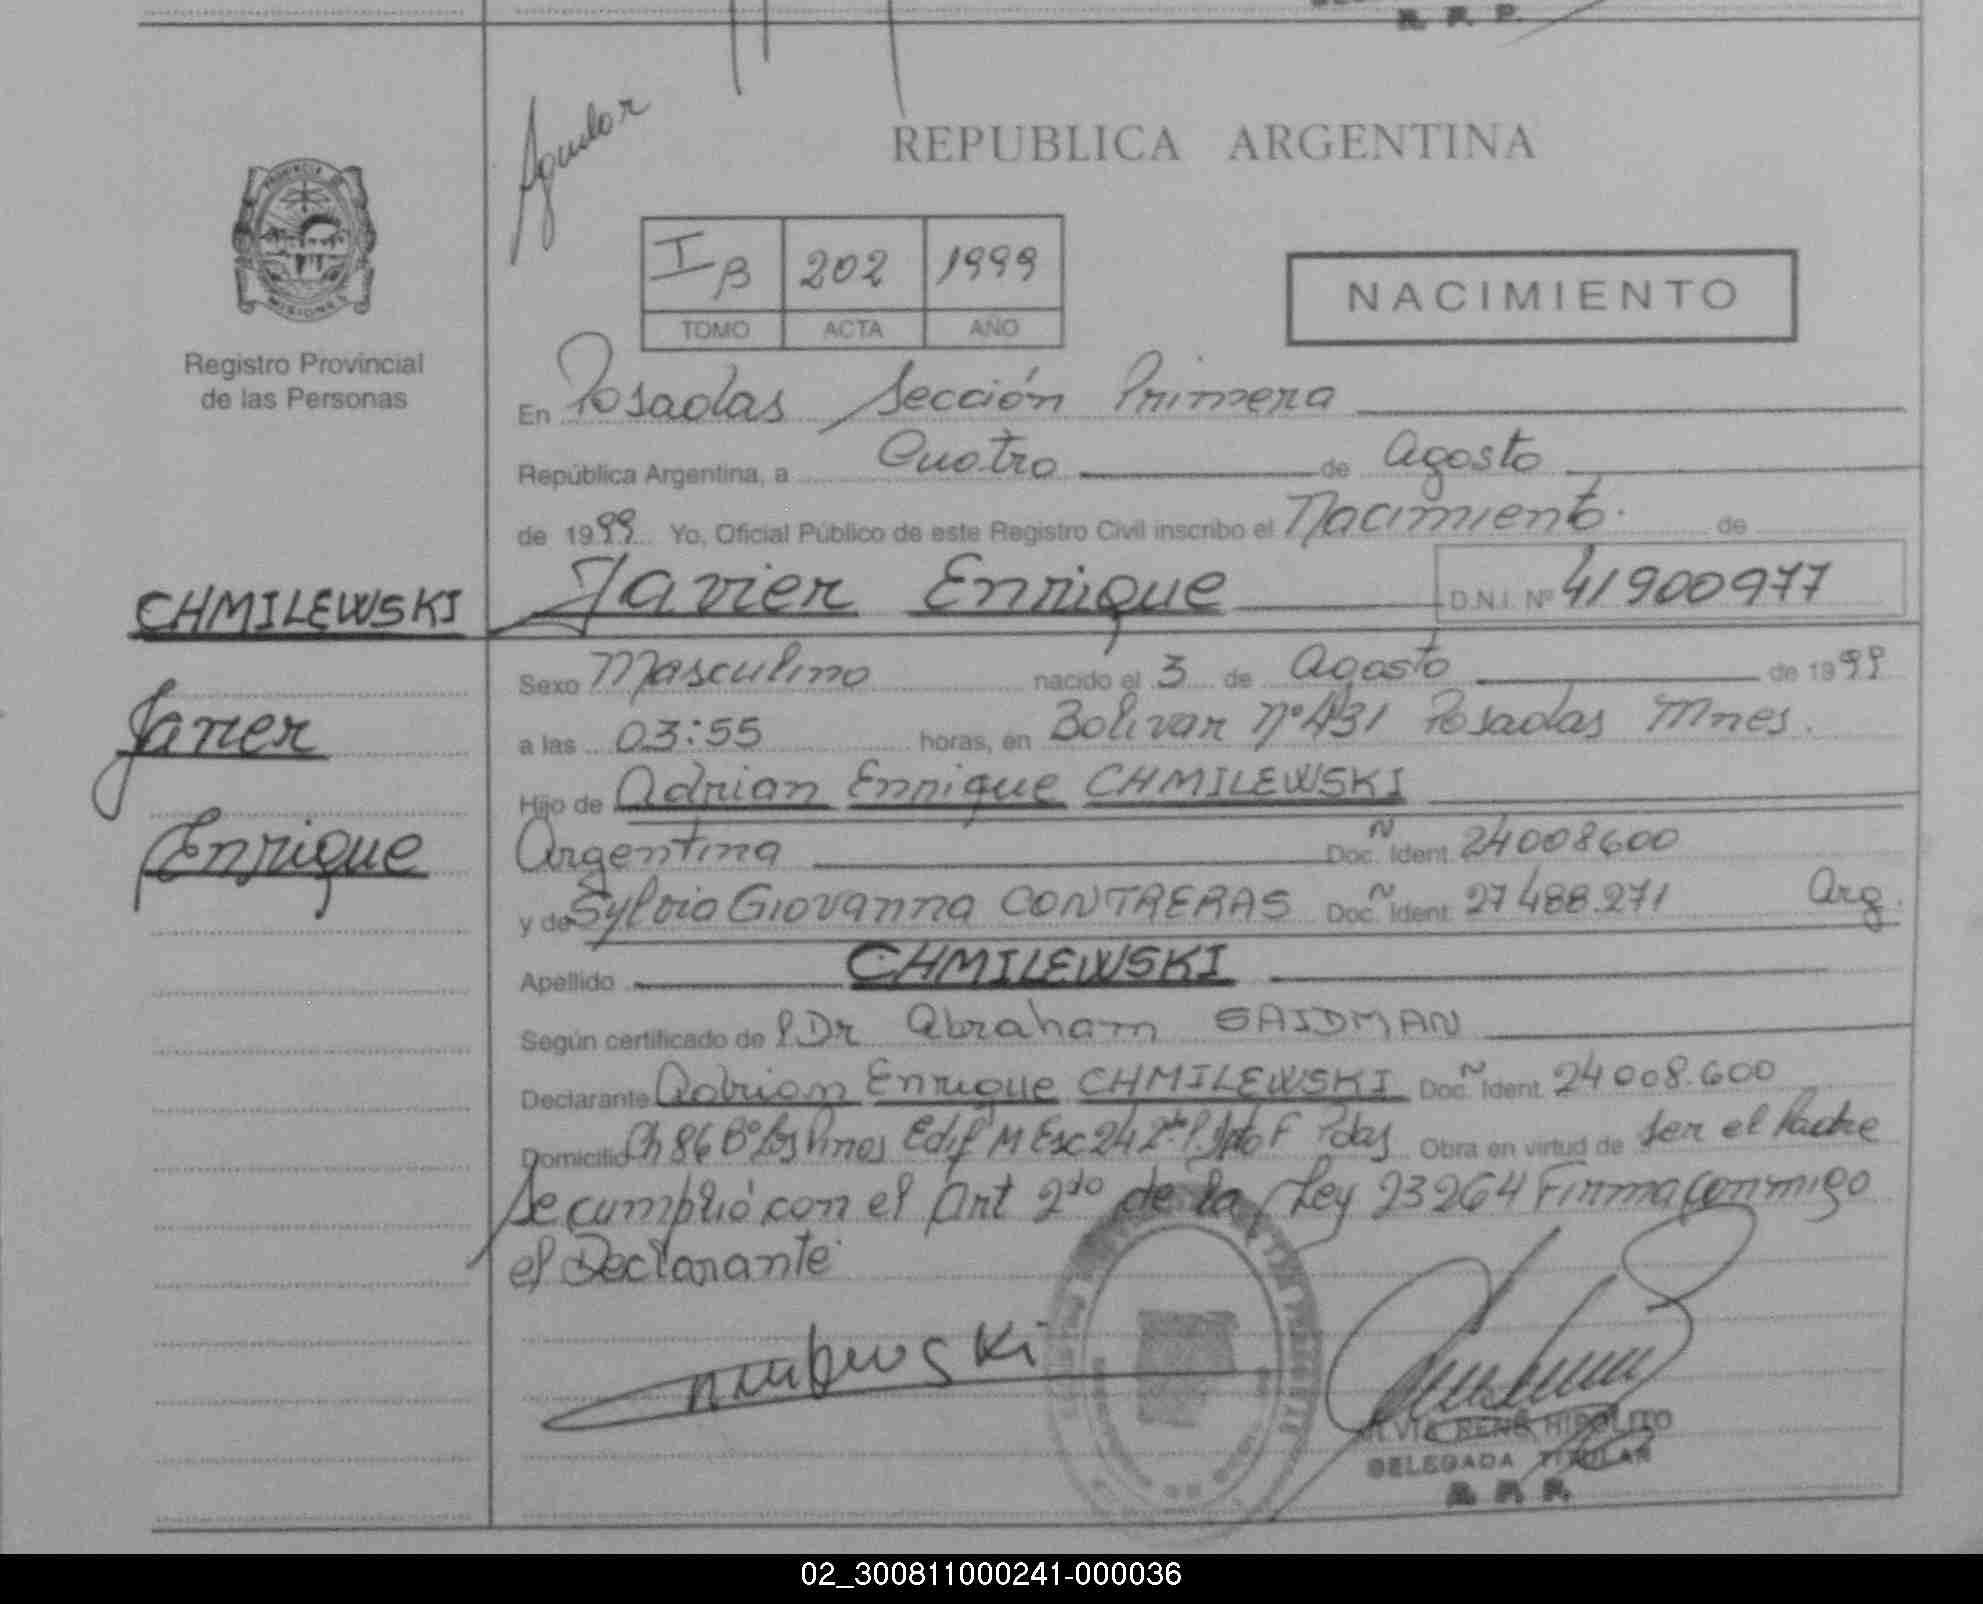 R. P. P.
Aguilar
REPUBLICA ARGENTINA
PROVINCIA DE
MISIONES
I B 202 1999
TOMO ACTA AÑO
NACIMIENTO
Registro Provincial
de las Personas
En Posadas Sección Primera
República Argentina, a Cuatro de Agosto
de 1999 Yo, Oficial Público de este Registro Civil inscribo el Nacimiento. de
CHMILEWSKI Javier Enrique D.N.I. Nº 41900977
Sexo Masculino nacido el 3 de Agosto de 1999
Javier
a las 03:55 horas, en Bolivar Nº 431 Posadas Mnes.
Hijo de Adrian Enrique CHMILEWSKI
Enrique
Argentina Doc. Ident. 24008600
y de Sylvia Giovanna CONTRERAS Doc. Ident. 27488.271 Arg.
Apellido CHMILEWSKI
Según certificado de Dr Abraham GAIDMAN
Declarante Adrian Enrique CHMILEWSKI Doc. Ident. 24008.600
Domicilio Ch 86 Bº Los Pinos Edif M Esc 24 2º P. Dpto F Pdas Obra en virtud de ser el Padre
Se cumplió con el Art 2do de la Ley 23264 Firma conmigo
el Declarante
RENE HIPOLITO
DELEGADA TITULAR
R. P. P.
02_300811000241-000036